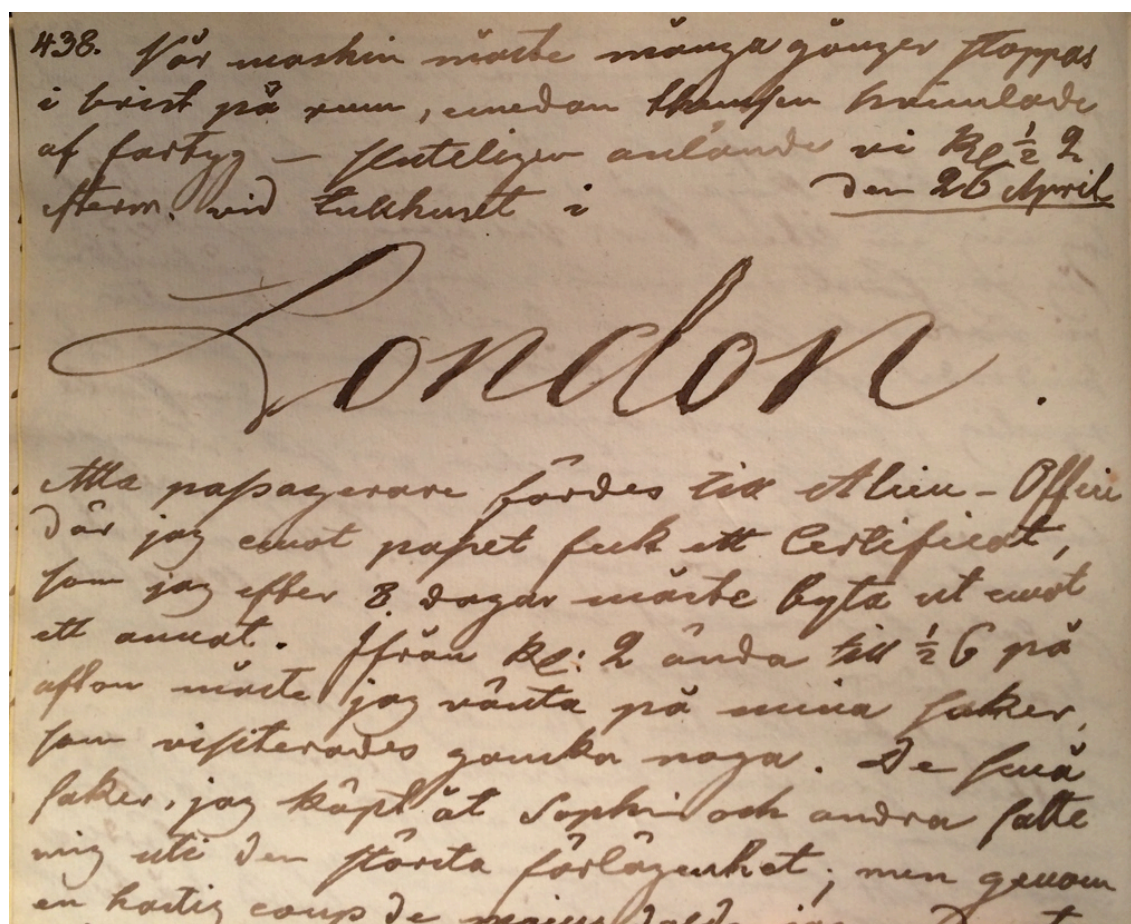 438. Vår maskin måste många gånger stoppas
i brist på rum, emedan Themsen hvimlade
af fartyg — Sluteligen anlände vi Kl ½ 2
efterm. vid Tullhuset i den 26 April
London.
Alla passagerare fördes till Alien-Office
där jag emot passet feck ett Certificat,
som jag efter 8 dagar måste byta ut emot
ett annat. Ifrån Kl: 2 ända till ½ 6 på
afton måste jag vänta på mina saker,
som visiterades ganska noga. De små
saker, jag köpt åt Sophie och andra satte
mig uti den största förlägenhet; men genom
en hastig coup de main